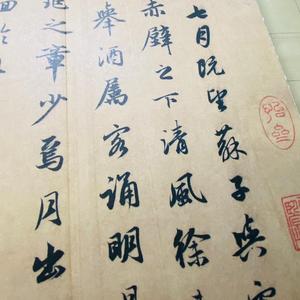 七月既望蘇子與客
赤壁之下清風徐
舉酒屬客誦明月
窕之章少焉月出
徊於